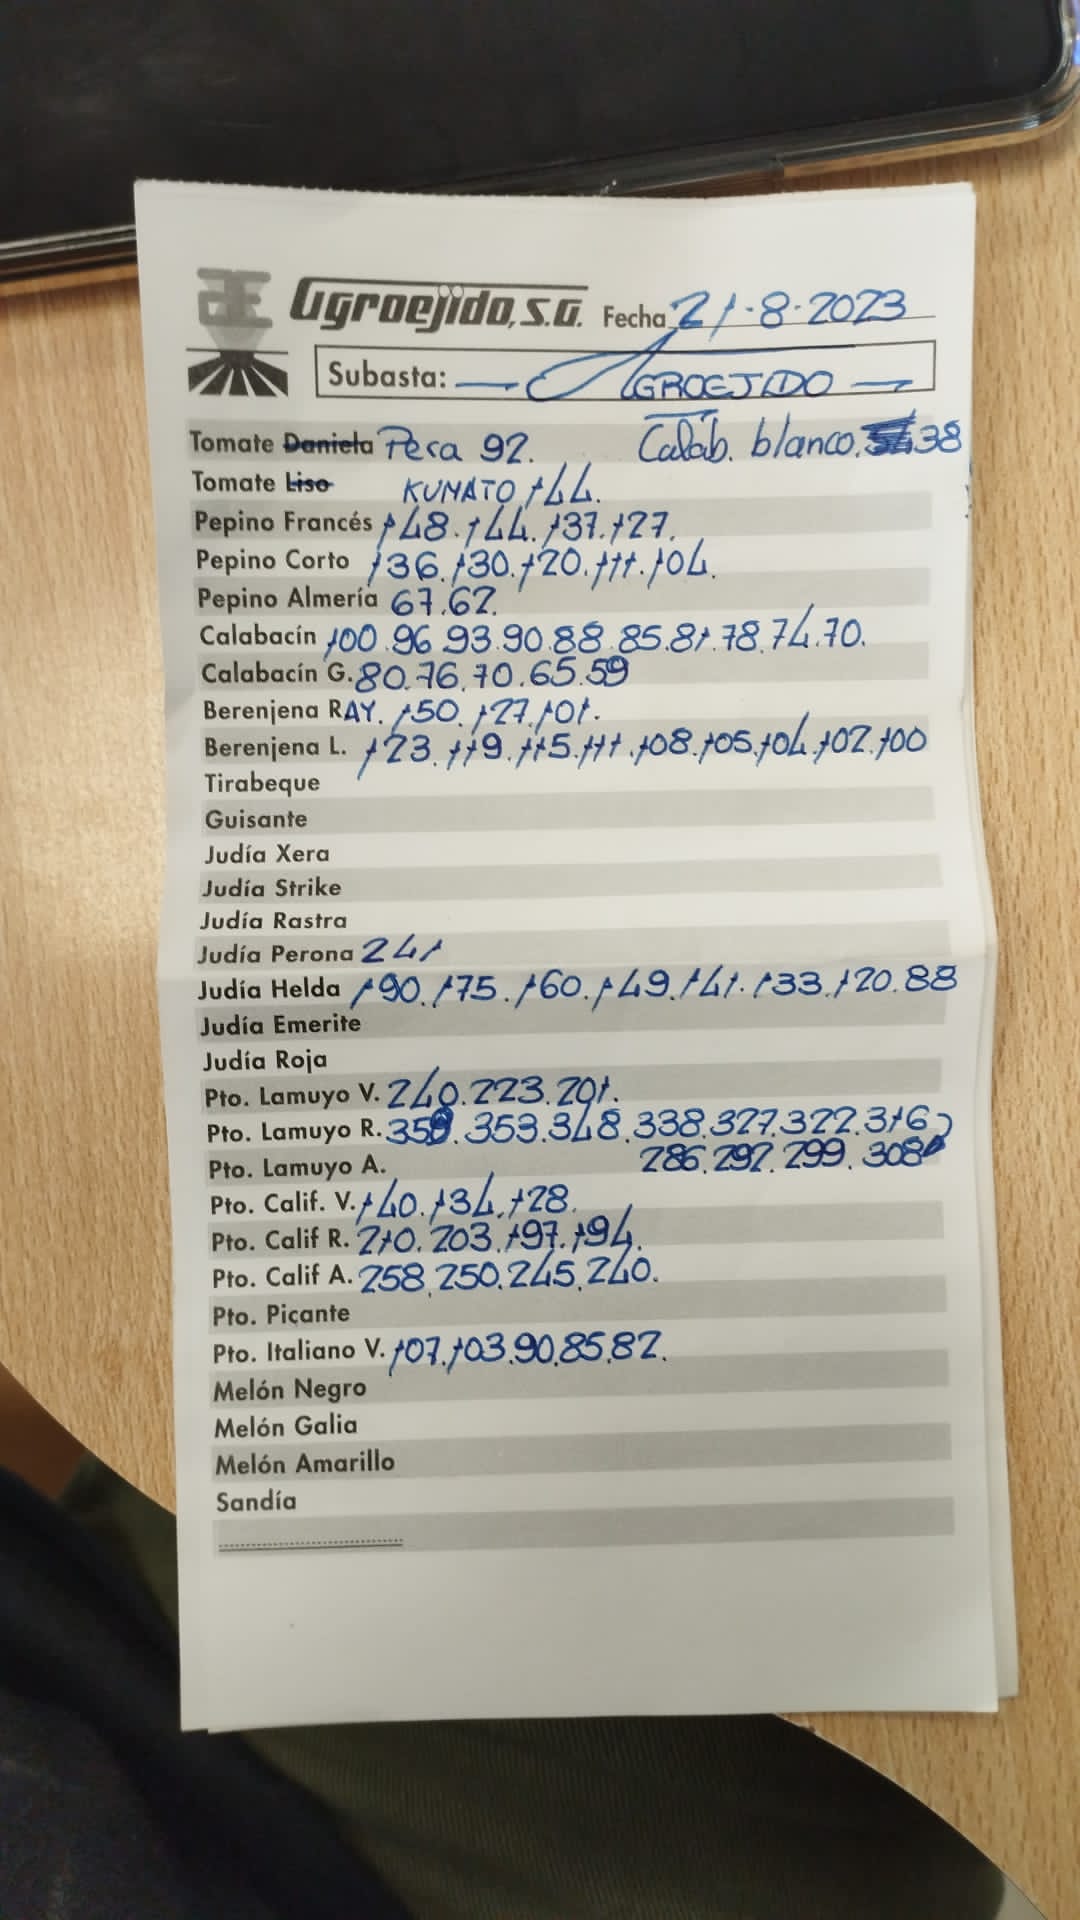 Agroejido, S.A. Fecha 21-8-2023
Subasta: — AGROEJIDO —
Tomate Daniela Pera 92. Calab. blanco. 38
Tomate Liso KUMATO 144.
Pepino Francés 148. 144. 137. 127.
Pepino Corto 136. 130. 120. 111. 104.
Pepino Almería 67. 62.
Calabacín 100. 96. 93. 90. 88. 85. 81. 78. 74. 70.
Calabacín G. 80. 76. 70. 65. 59
Berenjena RAY. 150. 127. 101.
Berenjena L. 123. 119. 115. 111. 108. 105. 104. 102. 100
Tirabeque
Guisante
Judía Xera
Judía Strike
Judía Rastra
Judía Perona 241
Judía Helda 190. 175. 160. 149. 141. 133. 120. 88
Judía Emerite
Judía Roja
Pto. Lamuyo V. 240. 223. 201.
Pto. Lamuyo R. 353. 348. 338. 327. 322. 316
Pto. Lamuyo A. 286. 292. 299. 308
Pto. Calif. V. 140. 134. 128.
Pto. Calif R. 210. 203. 197. 194.
Pto. Calif A. 258. 250. 245. 240.
Pto. Picante
Pto. Italiano V. 107. 103. 90. 85. 82.
Melón Negro
Melón Galia
Melón Amarillo
Sandía